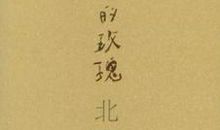 的玫瑰
北